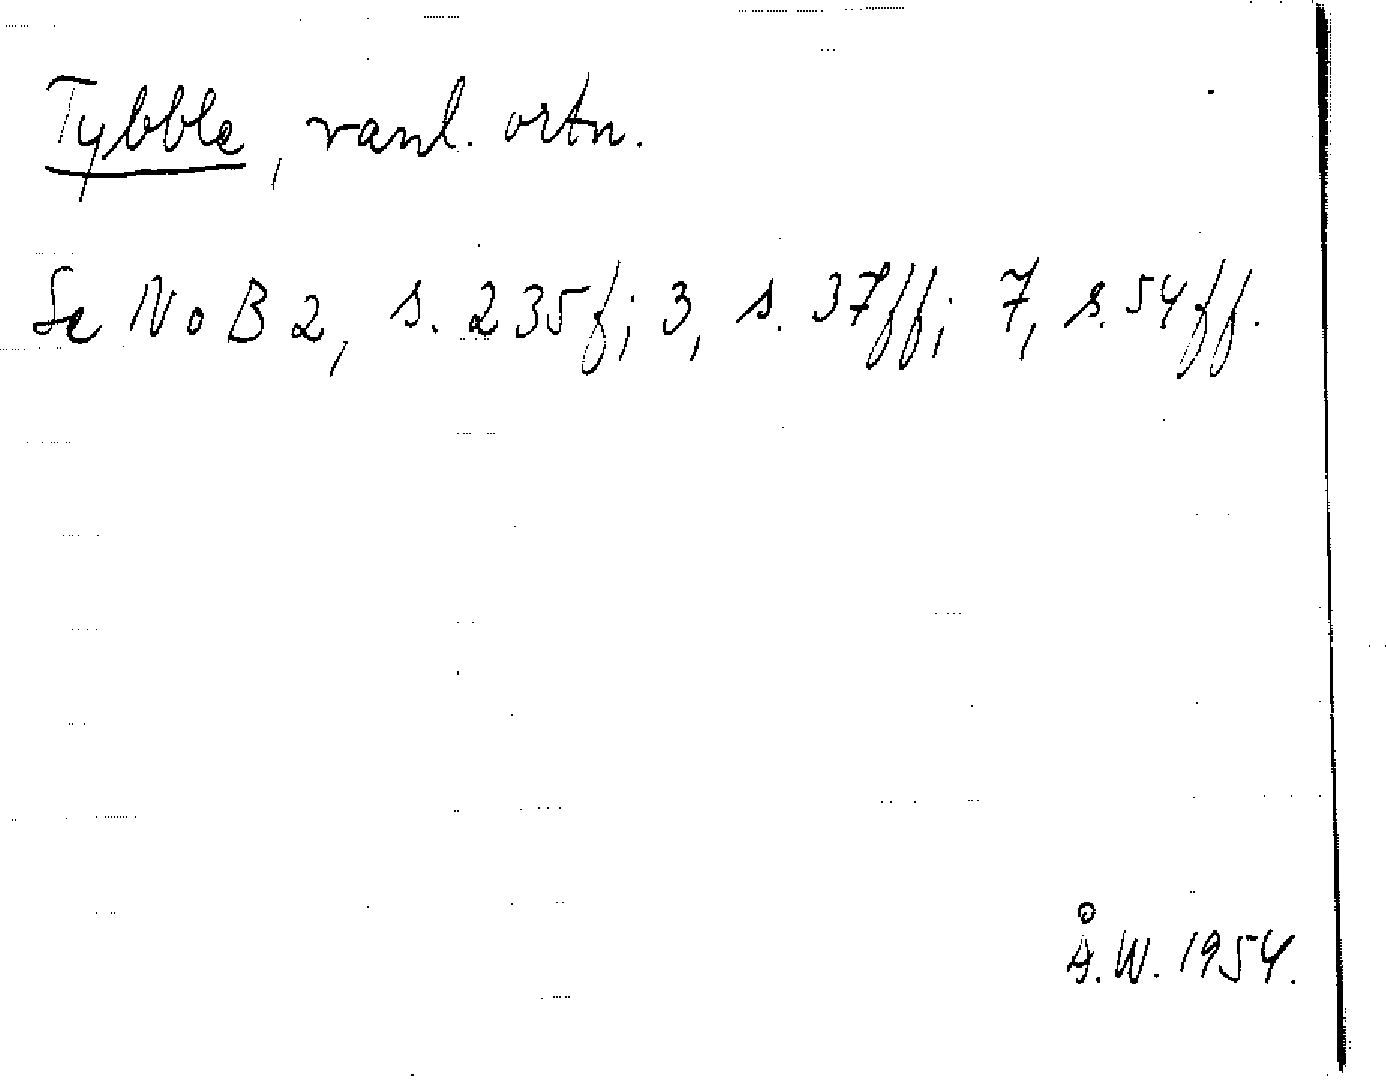 Tybble, vanl. ortn.
Se NoB 2, s. 235f; 3, s. 37ff; 7, s. 54ff.
Å.W. 1954.